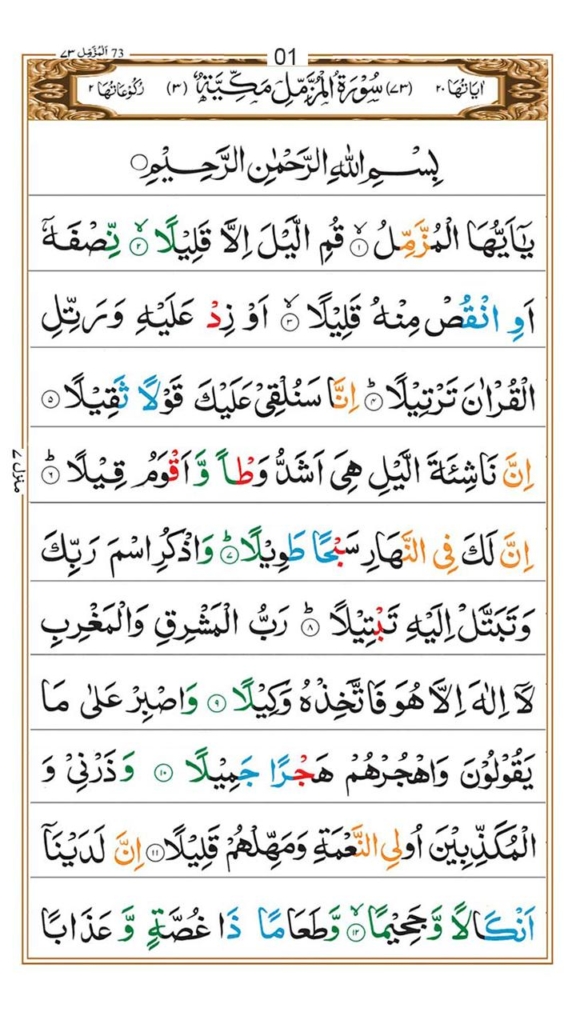 73 اَلْمُزَّمِّل ٧٣
01
اٰيَاتُهَا ٢٠ (٧٣) سُوْرَةُ الْمُزَّمِّلِ مَكِّيَّةٌ (٣) رُكُوْعَاتُهَا ٢
بِسْمِ اللّٰهِ الرَّحْمٰنِ الرَّحِيْمِ○
يٰۤاَيُّهَا الْمُزَّمِّلُ ۙ﴿۱﴾ قُمِ الَّيْلَ اِلَّا قَلِيْلًا ۙ﴿۲﴾ نِّصْفَهٗۤ
اَوِ انْقُصْ مِنْهُ قَلِيْلًا ۙ﴿۳﴾ اَوْ زِدْ عَلَيْهِ وَرَتِّلِ
الْقُرْاٰنَ تَرْتِيْلًا ؕ﴿۴﴾ اِنَّا سَنُلْقِيْ عَلَيْكَ قَوْلًا ثَقِيْلًا ﴿۵﴾
اِنَّ نَاشِئَةَ الَّيْلِ هِيَ اَشَدُّ وَطْاً وَّاَقْوَمُ قِيْلًا ؕ﴿۶﴾
اِنَّ لَكَ فِي النَّهَارِ سَبْحًا طَوِيْلًا ؕ﴿۷﴾ وَاذْكُرِ اسْمَ رَبِّكَ
وَتَبَتَّلْ اِلَيْهِ تَبْتِيْلًا ؕ﴿۸﴾ رَبُّ الْمَشْرِقِ وَالْمَغْرِبِ
لَاۤ اِلٰهَ اِلَّا هُوَ فَاتَّخِذْهُ وَكِيْلًا ﴿۹﴾ وَاصْبِرْ عَلٰى مَا
يَقُوْلُوْنَ وَاهْجُرْهُمْ هَجْرًا جَمِيْلًا ﴿۱۰﴾ وَذَرْنِيْ وَ
الْمُكَذِّبِيْنَ اُولِي النَّعْمَةِ وَمَهِّلْهُمْ قَلِيْلًا ﴿۱۱﴾ اِنَّ لَدَيْنَاۤ
اَنْكَالًا وَّجَحِيْمًا ۙ﴿۱۲﴾ وَّطَعَامًا ذَا غُصَّةٍ وَّ عَذَابًا
منزل ٧